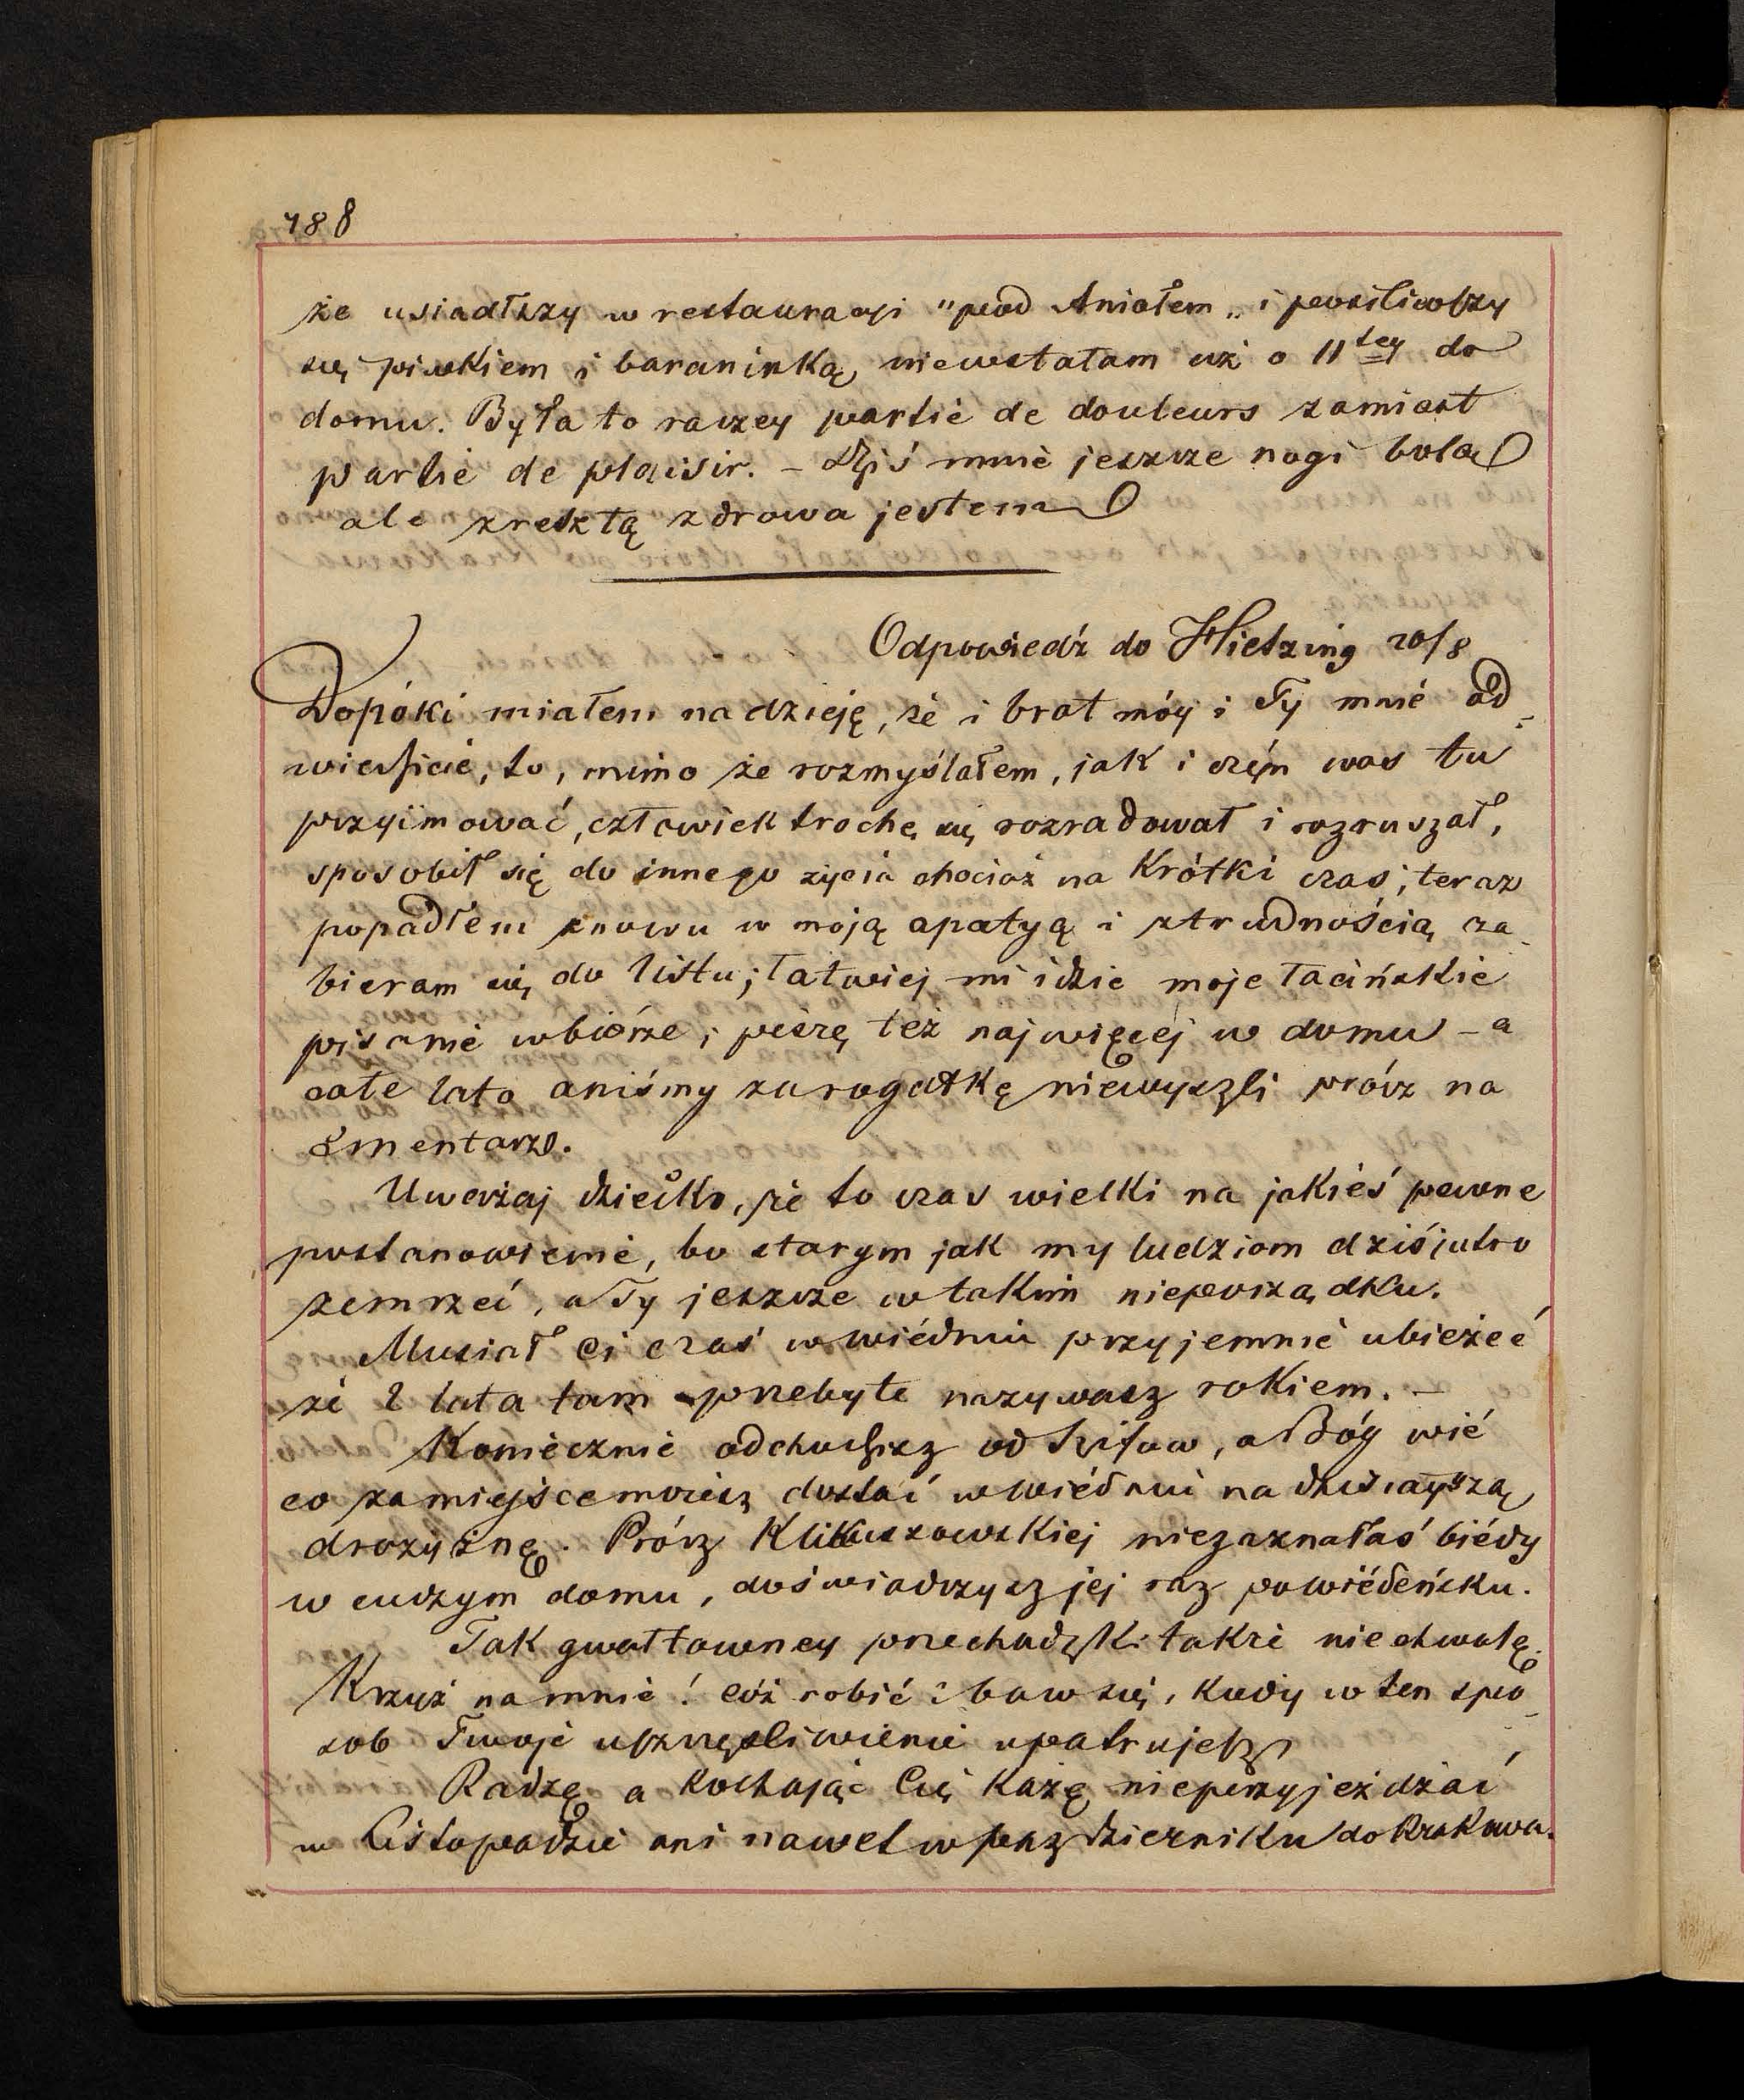 188
że usiadłszy w restauracyi "pod Aniołem„ i posiliwszy
się piwkiem i baraninką, niewstałam aż o 11tey do
domu. Była to raczey partie de douleurs zamiast
partie de plaisir. – Dziś mnie jeszcze nogi bolą
ale zresztą zdrowa jestem
Odpowiedź do Hietzing 20/8
Dopóki miałem nadzieję, że i brat móy i Ty mnie od-
wiedzicie, to, mimo że rozmyślałem, jak i czém was tu
przyimować, człowiek trochę się rozradował i rozruszał,
sposobił się do innego życia chociaż na krótki czas; teraz
popadłem znowu w moją apatyą i ztrudnością za-
bieram się do listu; łatwiej mi idzie moje łacińskie
pisanie wbiórze; piszę też najwięcej w domu – a
całe lato aniśmy zarogatkę niewyszli prócz na
smentarz.
Uważaj dziecko, że to czas wielki na jakieś pewne
postanowienie, bo starym jak my ludziom dziśjutro
zemrzeć, a Ty jeszcze w takim nieporządku.
Musiał Ci czas w Wiédniu przyjemnie ubieżeć
że 2 lata tam przebyte nazywasz rokiem. –
Koniecznie odchodzisz od Szifaw, a Bóg wié
co zamiejsce możesz dostać w Wiédniu na dzisiayszą
drożyznę. Prócz Klikuszowskiej niezaznałaś biédy
w cudzym domu, doświadczysz jej raz powiédeńsku.
Tak gwałtowney przechadzki także nie chwalę.
Krzyż na mnie! cóż robić? baw się, kiedy w ten spo-
sob Twoje uszczęśliwienie upatrujesz
Radzę a kochając Cię każę nieprzyjeżdżać
w Listopadzie ani nawet w pazdzierniku do Krakowa.